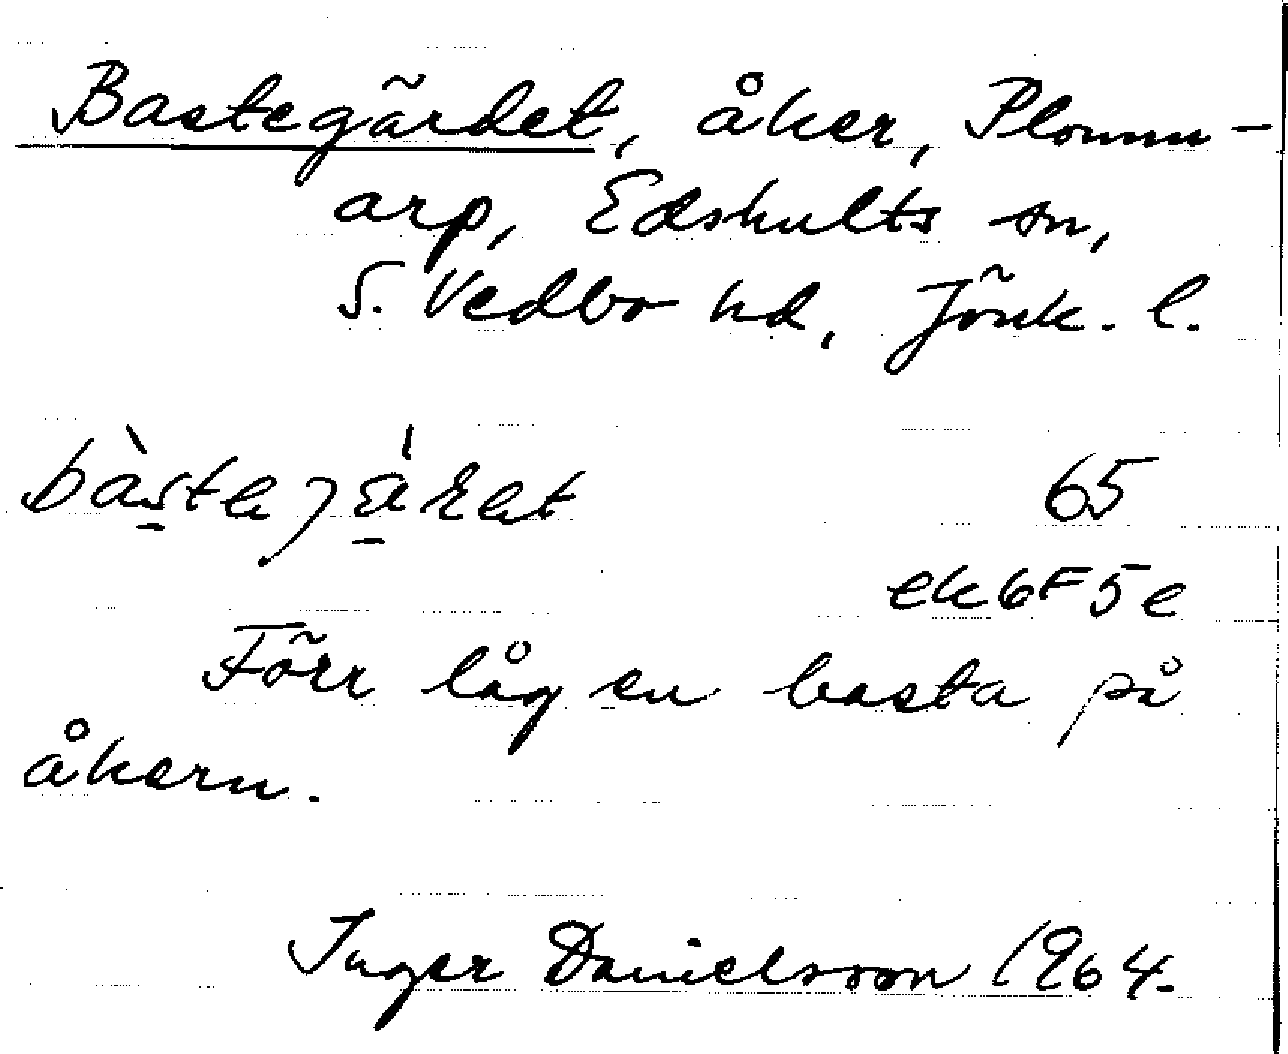 Bastegärdet, åker, Plomm-
arp, Edshults sn,
S. Vedbo hd, Jönk. l.
65
ek 6F5e
Förr låg en basta på
åkern.
Inger Danielsson 1964.